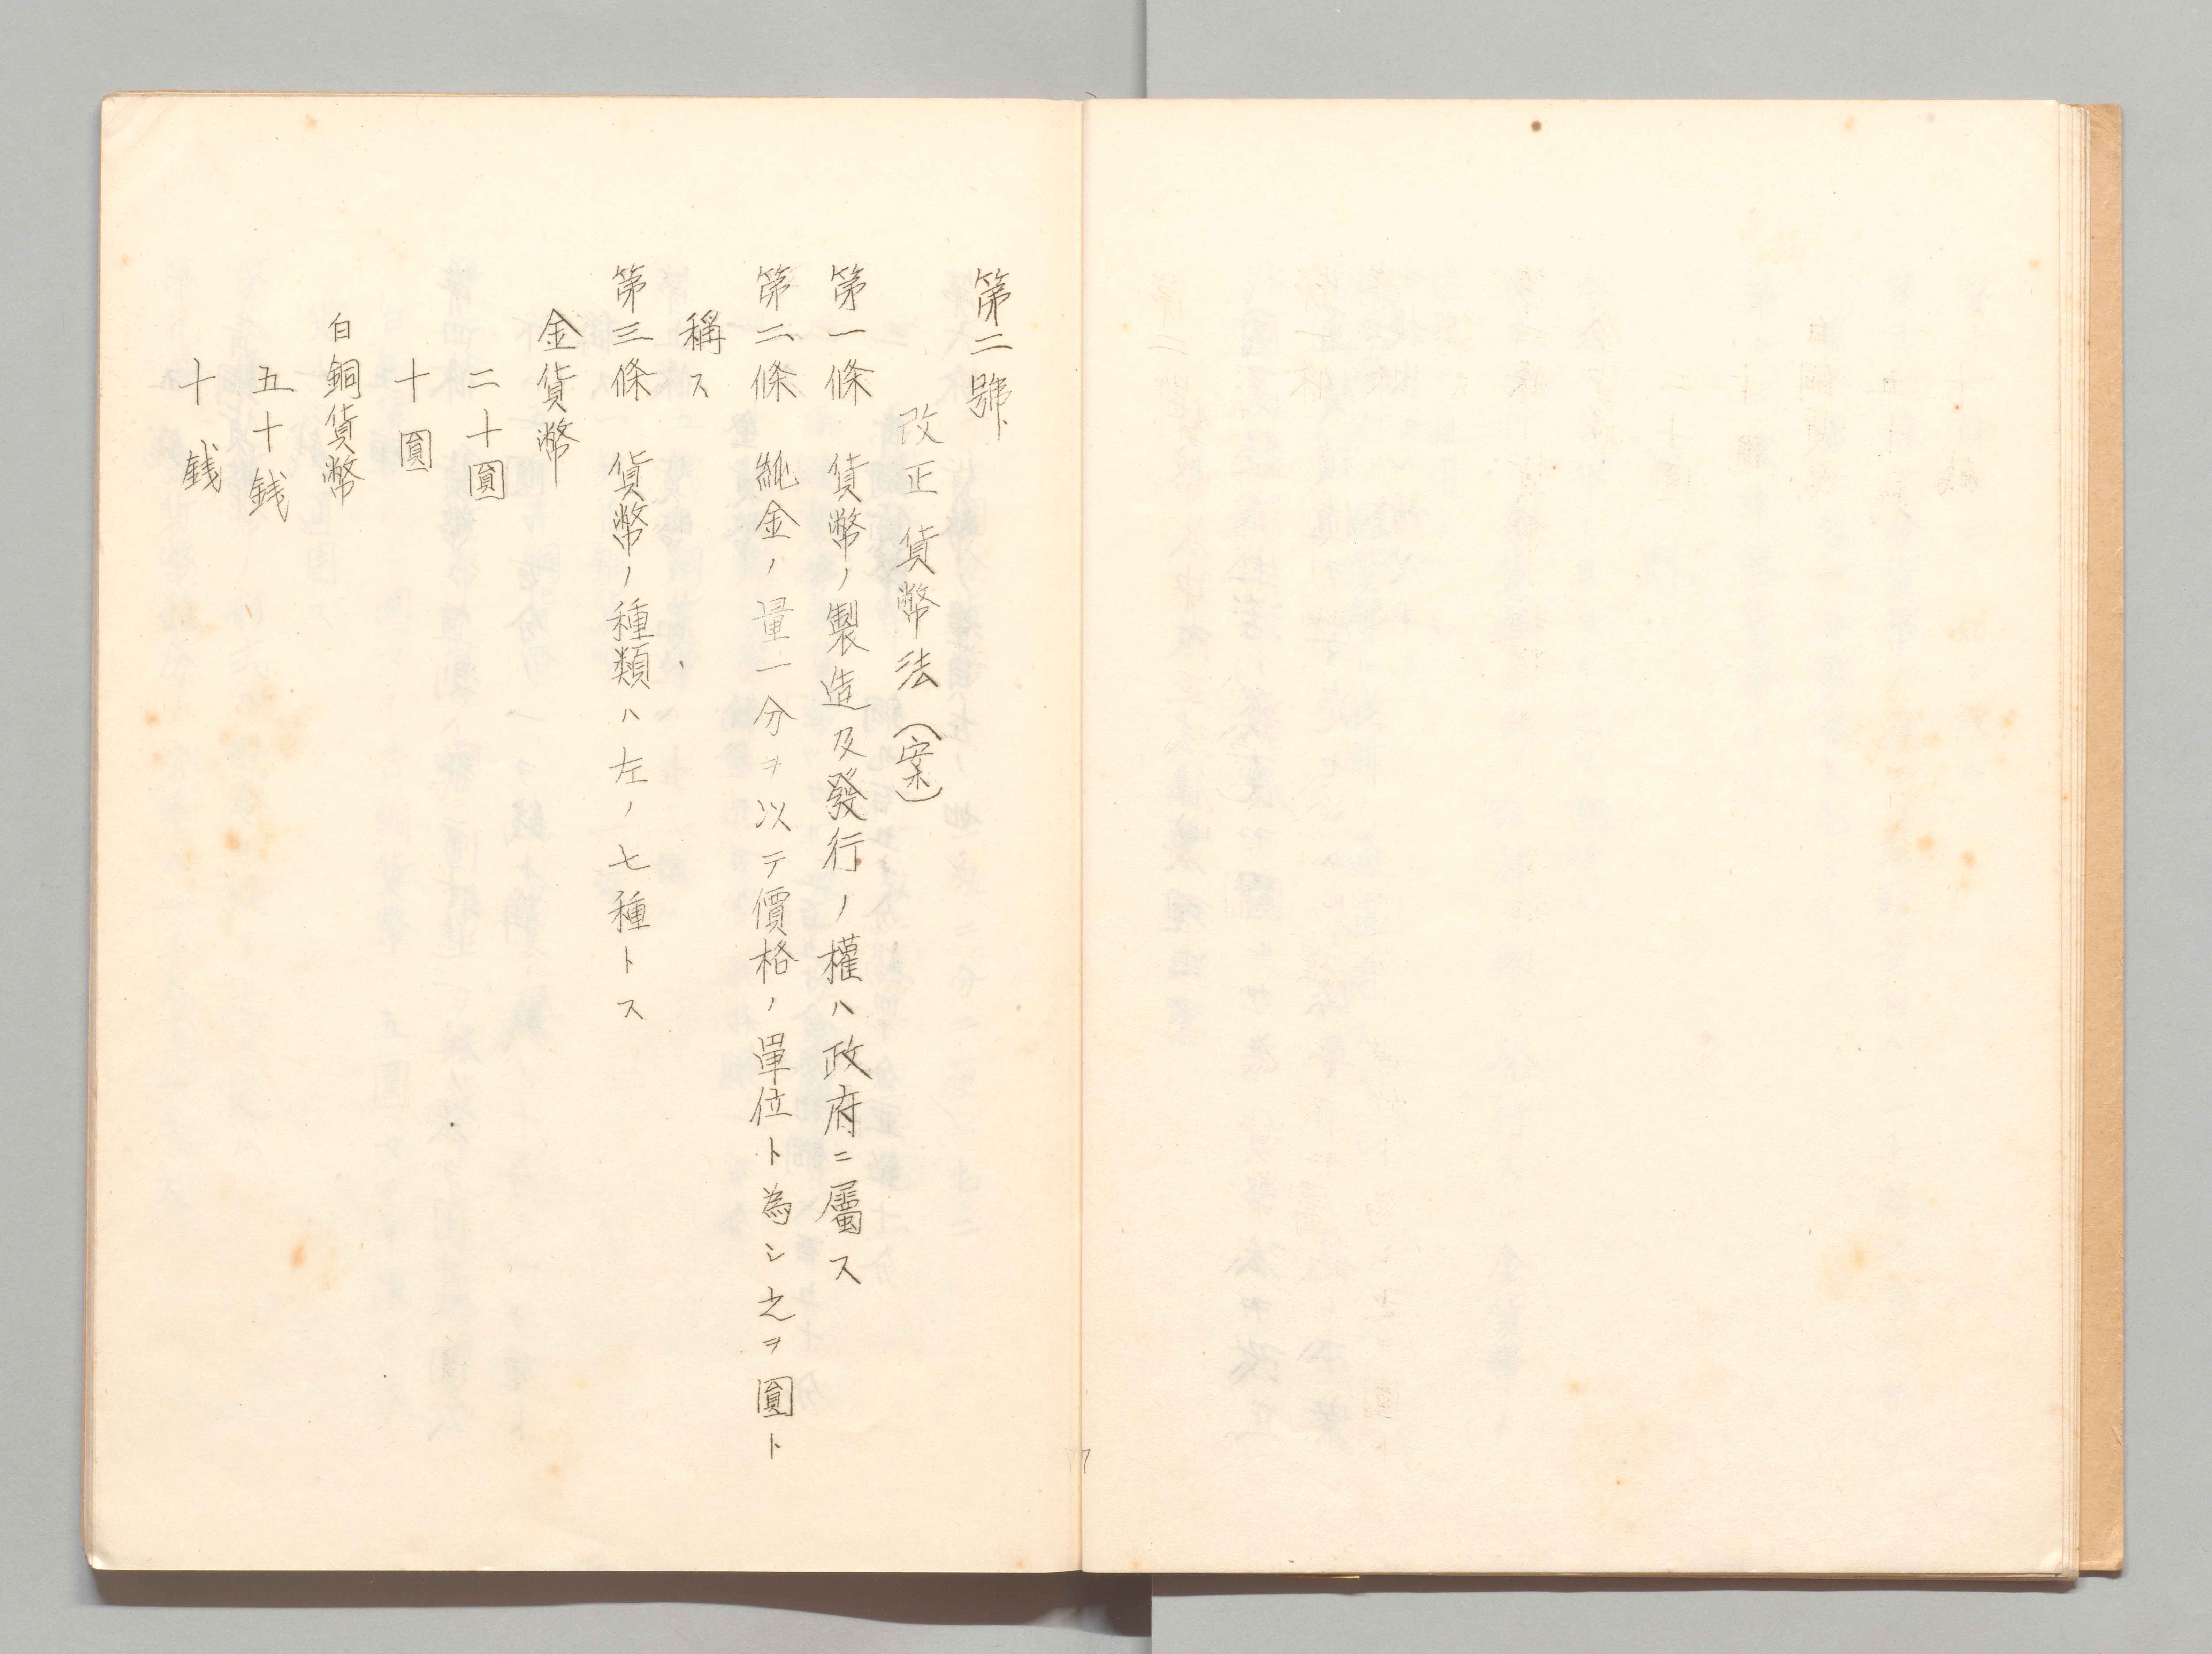 第二號
改正貨幣法(案)
第一條　貨幣ノ製造及發行ノ權ハ政府ニ屬ス
第二條　純金ノ量一分ヲ以テ價格ノ單位ト為シ之ヲ圓ト
稱ス
第三條　貨幣ノ種類ハ左ノ七種トス
金貨幣
二十圓
十圓
白銅貨幣
五十銭
十銭